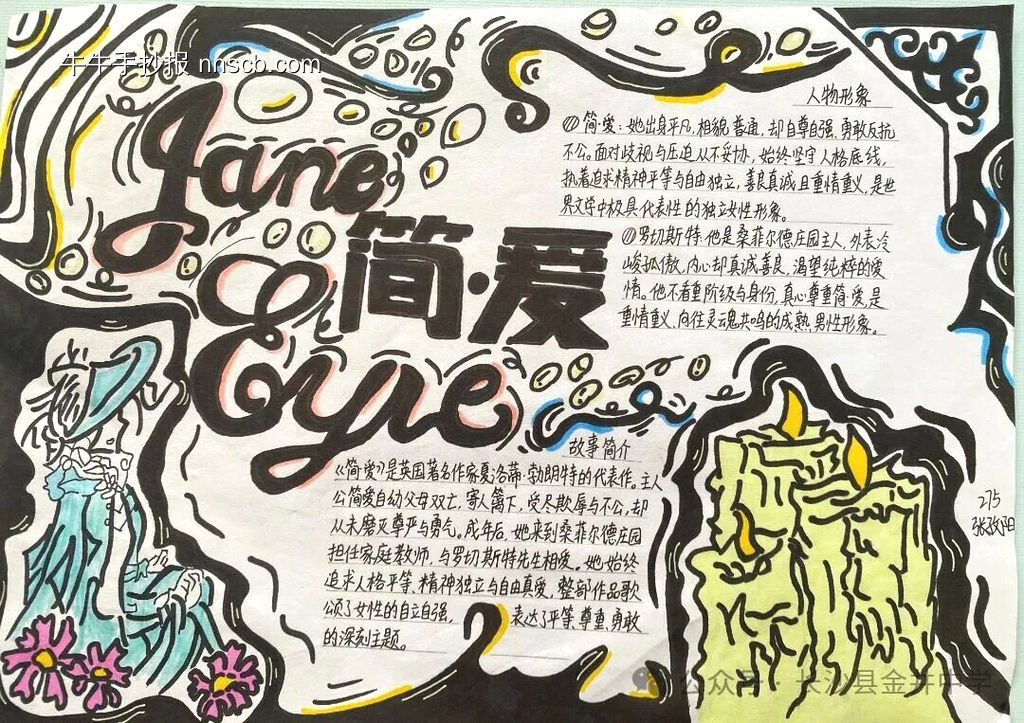 牛牛手抄报 nhscb.com
Jane
Eyre
简·爱
人物形象
简·爱：她出身平凡，相貌普通，却自尊自强、勇敢反抗
不公。面对歧视与压迫从不妥协，始终坚守人格底线，
执着追求精神平等与自由独立，善良真诚且重情重义，是世
界文学中极具代表性的独立女性形象。
罗切斯特：他是桑菲尔德庄园主人，外表冷
峻孤傲，内心却真诚善良，渴望纯粹的爱
情。他不看重阶级与身份，真心尊重简·爱，是
重情重义、向往灵魂共鸣的成熟男性形象。
故事简介
《简·爱》是英国著名作家夏洛蒂·勃朗特的代表作。主人
公简爱自幼父母双亡，寄人篱下，受尽欺辱与不公，却
从未磨灭尊严与勇气。成年后，她来到桑菲尔德庄园
担任家庭教师，与罗切斯特先生相爱。她始终
追求人格平等、精神独立与自由真爱，整部作品歌
颂了女性的自立自强，表达了平等、尊重、勇敢
的深刻主题。
275
公众号·长沙县金井中学